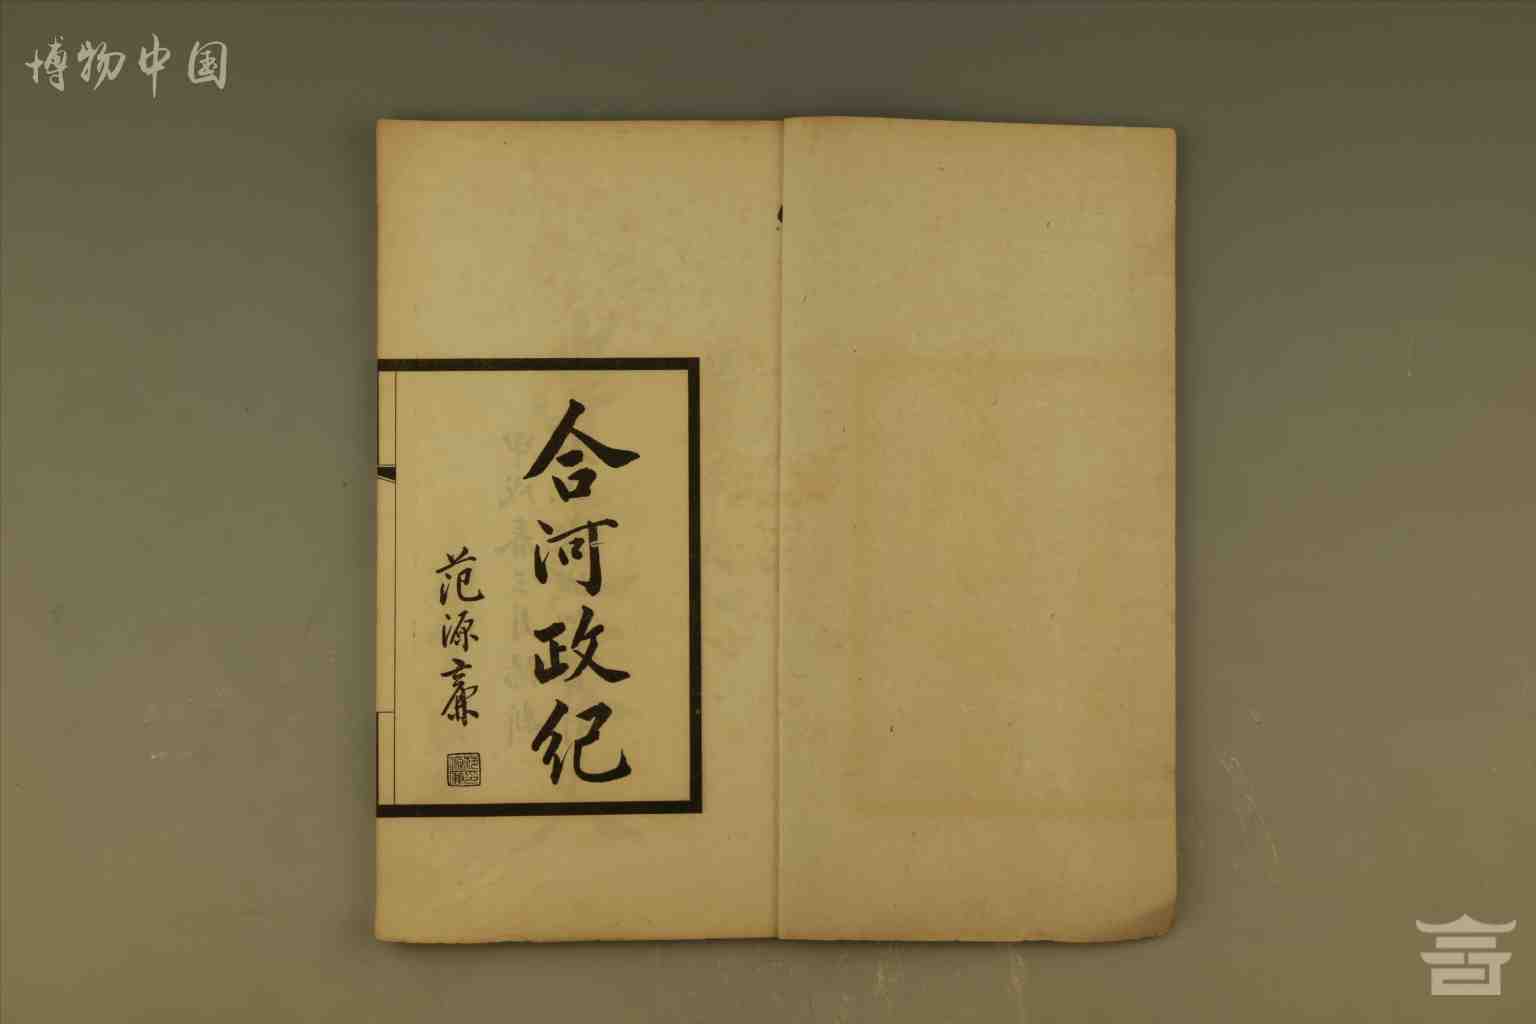 博物中国
合河政纪
范源廉